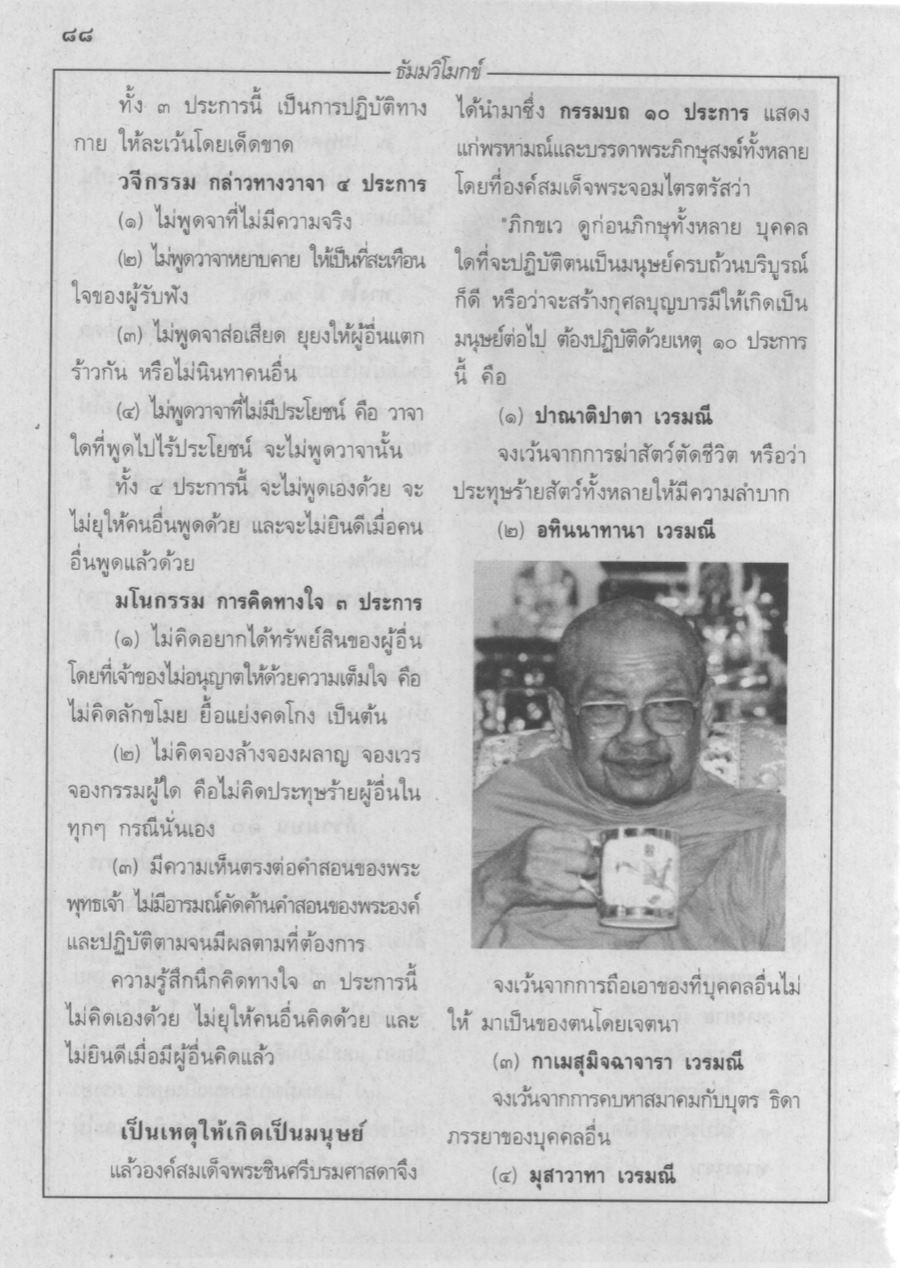 ๘๘
ธัมมวิโมกข์
ทั้ง ๓ ประการนี้ เป็นการปฏิบัติทาง
กาย ให้ละเว้นโดยเด็ดขาด
วจีกรรม กล่าวทางวาจา ๔ ประการ
(๑) ไม่พูดจาที่ไม่มีความจริง
(๒) ไม่พูดวาจาหยาบคาย ให้เป็นที่สะเทือน
ใจของผู้รับฟัง
(๓) ไม่พูดจาส่อเสียด ยุยงให้ผู้อื่นแตก
ร้าวกัน หรือไม่นินทาคนอื่น
(๔) ไม่พูดวาจาที่ไม่มีประโยชน์ คือ วาจา
ใดที่พูดไปไร้ประโยชน์ จะไม่พูดวาจานั้น
ทั้ง ๔ ประการนี้ จะไม่พูดเองด้วย จะ
ไม่ยุให้คนอื่นพูดด้วย และจะไม่ยินดีเมื่อคน
อื่นพูดแล้วด้วย
มโนกรรม การคิดทางใจ ๓ ประการ
(๑) ไม่คิดอยากได้ทรัพย์สินของผู้อื่น
โดยที่เจ้าของไม่อนุญาตให้ด้วยความเต็มใจ คือ
ไม่คิดลักขโมย ยื้อแย่งคดโกง เป็นต้น
(๒) ไม่คิดจองล้างจองผลาญ จองเวร
จองกรรมผู้ใด คือไม่คิดประทุษร้ายผู้อื่นใน
ทุกๆ กรณีนั่นเอง
(๓) มีความเห็นตรงต่อคำสอนของพระ
พุทธเจ้า ไม่มีอารมณ์คัดค้านคำสอนของพระองค์
และปฏิบัติตามจนมีผลตามที่ต้องการ
ความรู้สึกนึกคิดทางใจ ๓ ประการนี้
ไม่คิดเองด้วย ไม่ยุให้คนอื่นคิดด้วย และ
ไม่ยินดีเมื่อมีผู้อื่นคิดแล้ว
เป็นเหตุให้เกิดเป็นมนุษย์
แล้วองค์สมเด็จพระชินศรีบรมศาสดาจึง
ได้นำมาซึ่ง กรรมบถ ๑๐ ประการ แสดง
แก่พรหามณ์และบรรดาพระภิกษุสงฆ์ทั้งหลาย
โดยที่องค์สมเด็จพระจอมไตรตรัสว่า
"ภิกขเว ดูก่อนภิกษุทั้งหลาย บุคคล
ใดที่จะปฏิบัติตนเป็นมนุษย์ครบถ้วนบริบูรณ์
ก็ดี หรือว่าจะสร้างกุศลบุญบารมีให้เกิดเป็น
มนุษย์ต่อไป ต้องปฏิบัติด้วยเหตุ ๑๐ ประการ
นี้ คือ
(๑) ปาณาติปาตา เวรมณี
จงเว้นจากการฆ่าสัตว์ตัดชีวิต หรือว่า
ประทุษร้ายสัตว์ทั้งหลายให้มีความลำบาก
(๒) อทินนาทานา เวรมณี
จงเว้นจากการถือเอาของที่บุคคลอื่นไม่
ให้ มาเป็นของตนโดยเจตนา
(๓) กาเมสุมิจฉาจารา เวรมณี
จงเว้นจากการคบหาสมาคมกับบุตร ธิดา
ภรรยาของบุคคลอื่น
(๔) มุสาวาทา เวรมณี